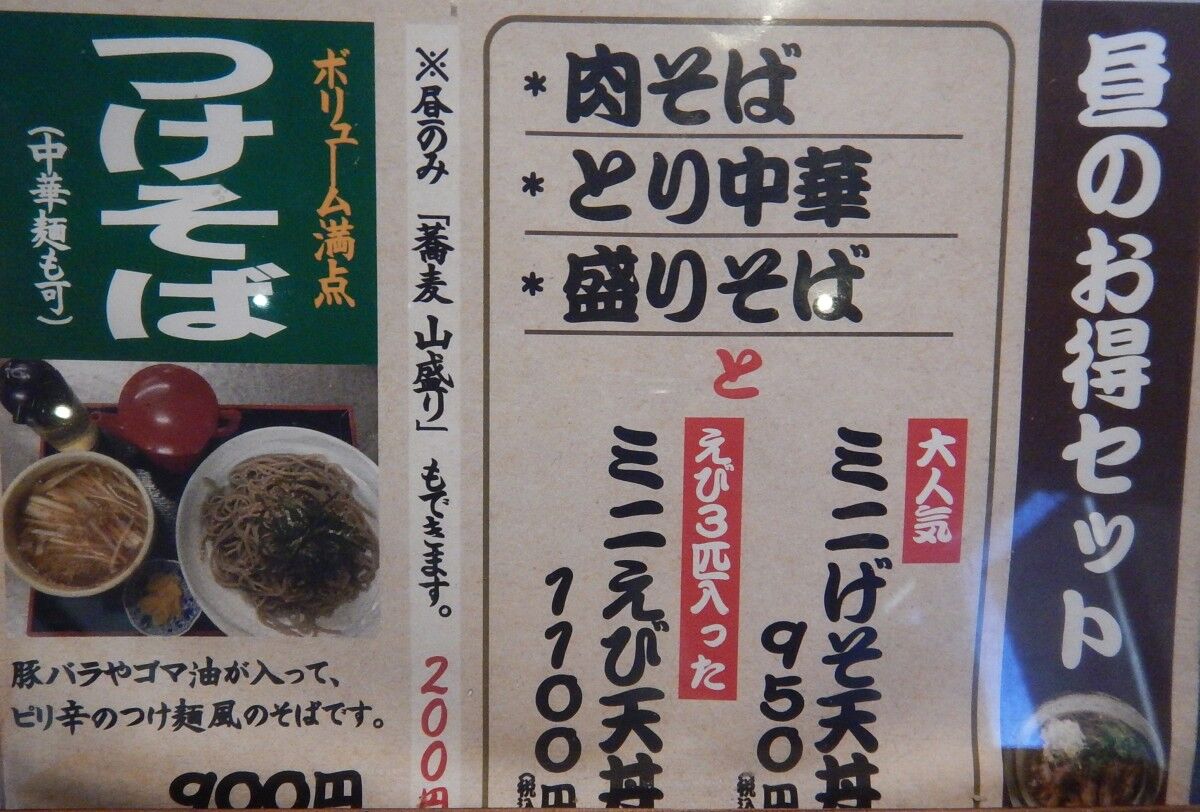 昼のお得セット
* 肉そば
* とり中華
* 盛りそば
と
大人気
ミニげそ天丼
950円
(税込
えび3匹入った
ミニえび天丼
1100円
(税込
※昼のみ「蕎麦山盛り」もできます。200円
ボリューム満点
つけそば
(中華麺も可)
豚バラやゴマ油が入って、
ピリ辛のつけ麺風のそばです。
900円